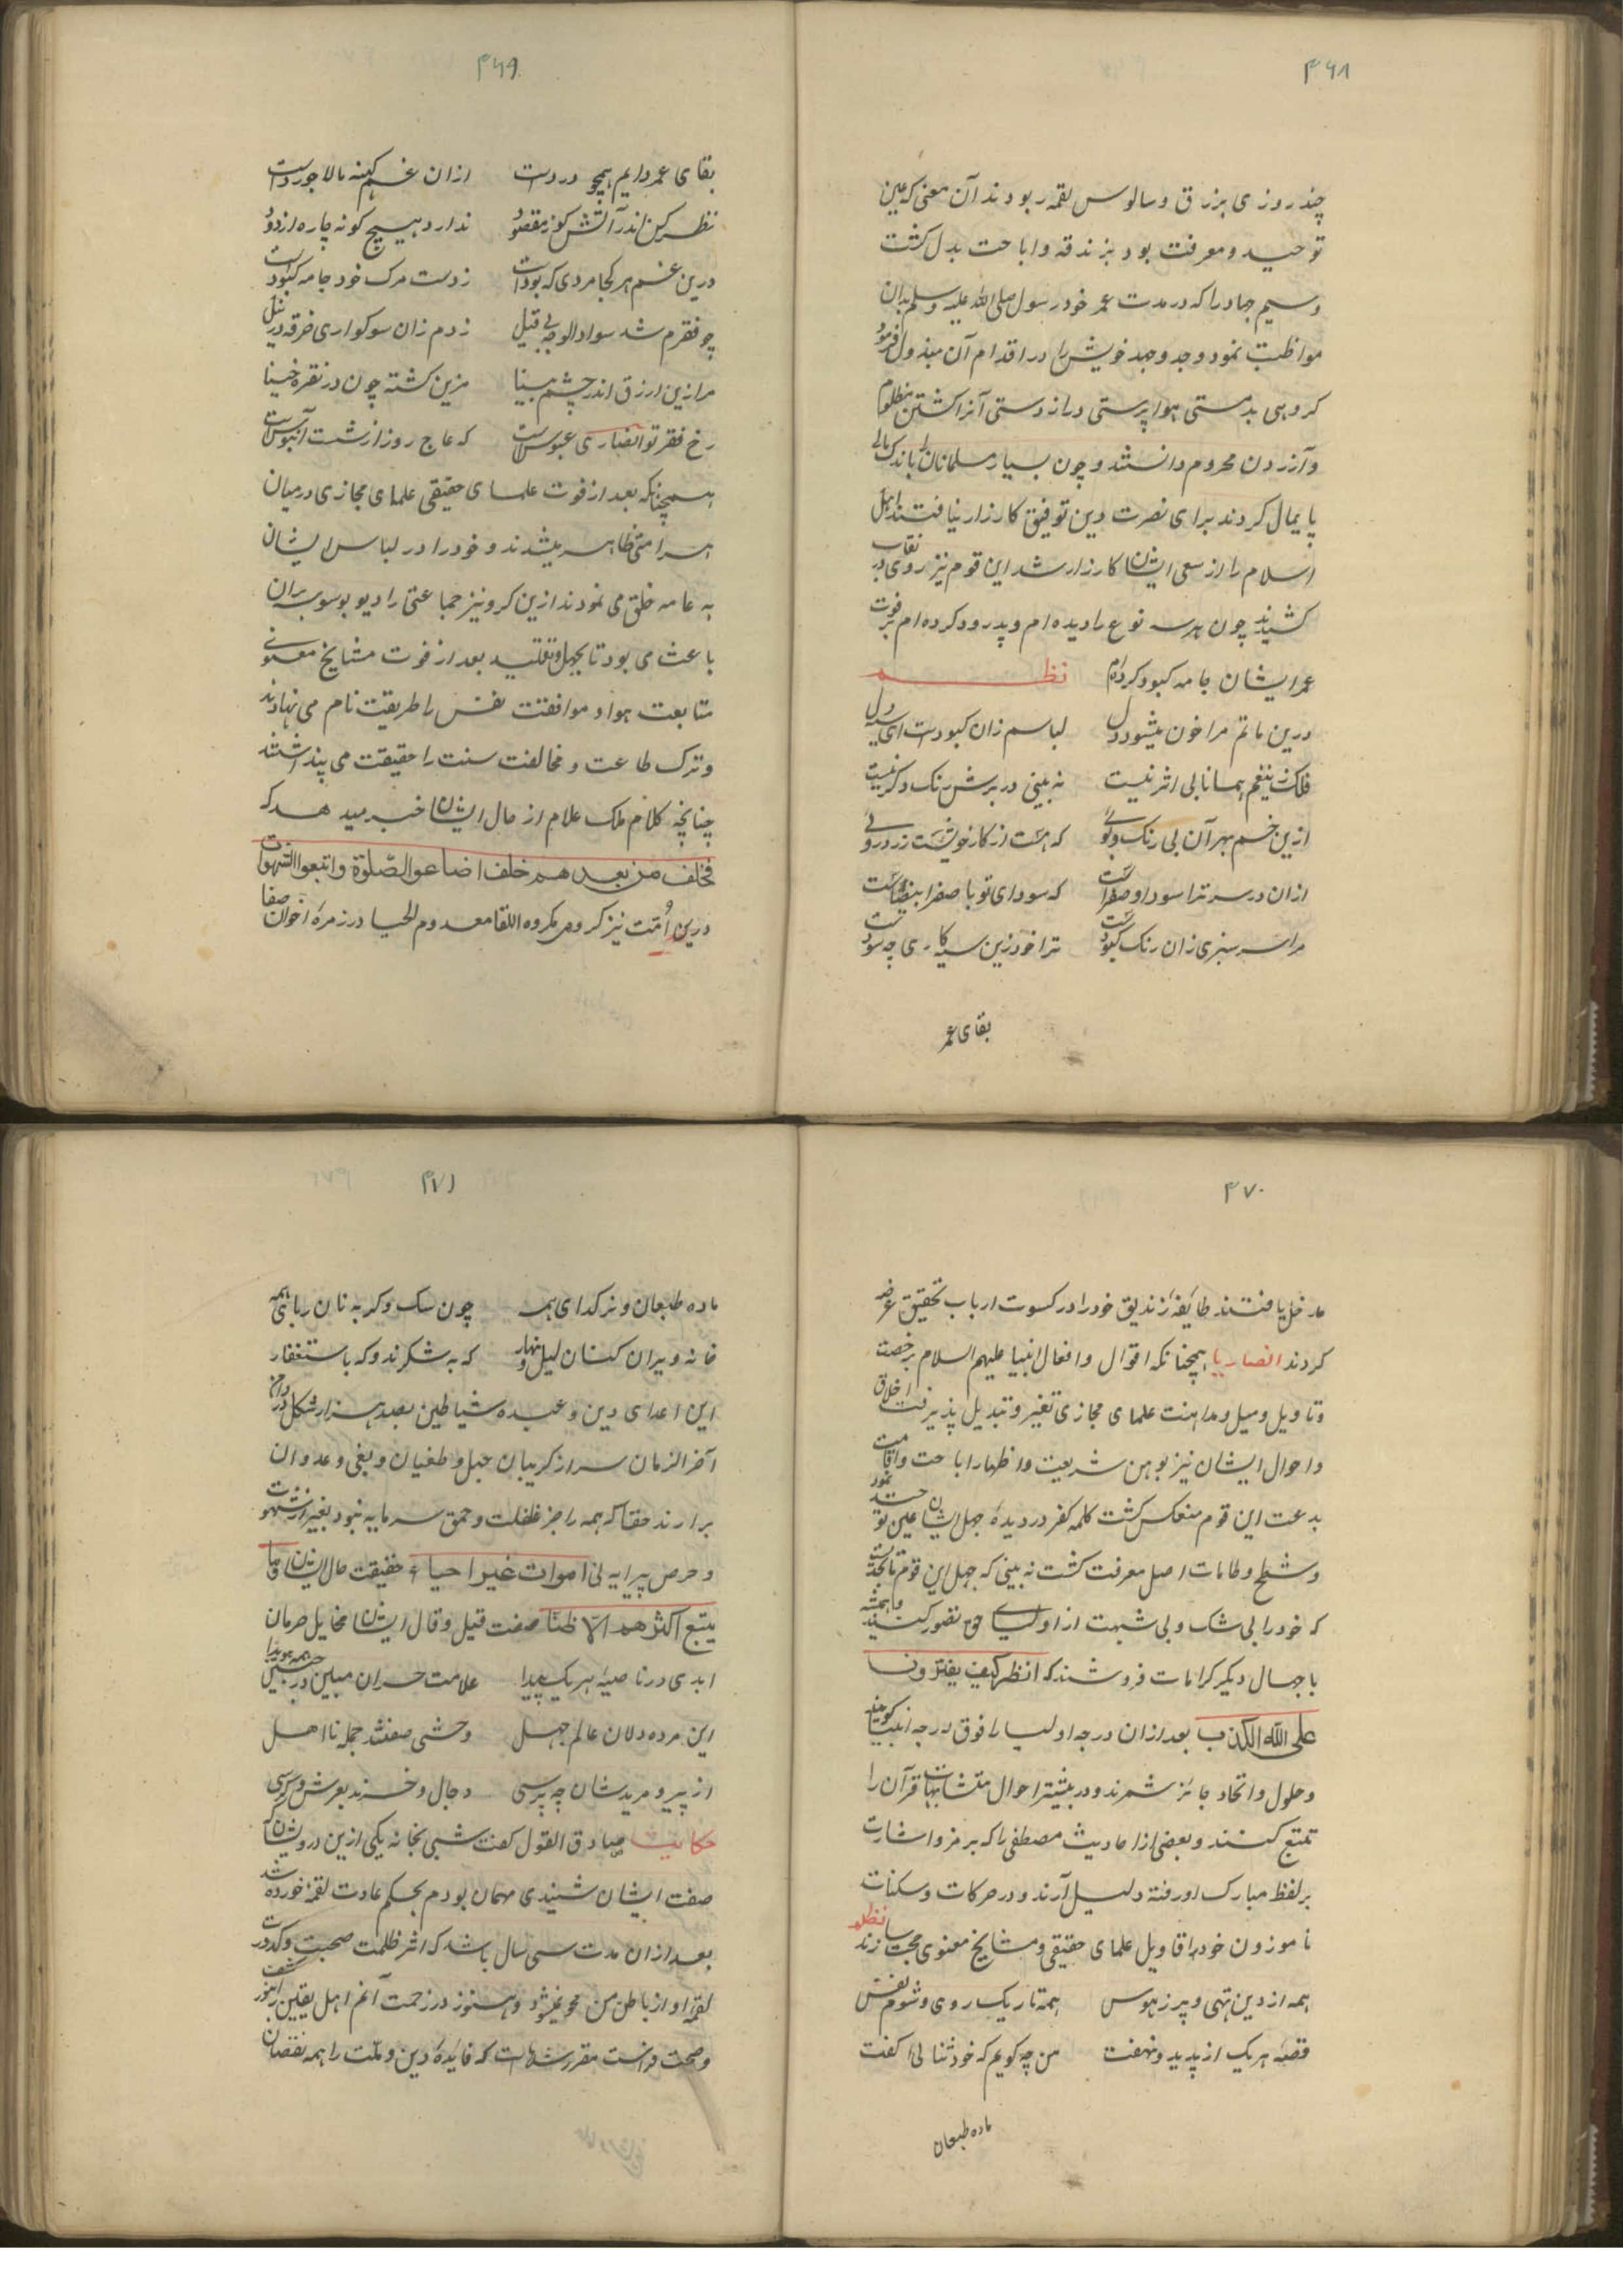 ۴۶۸
چند روزی بزرق و سالوس لقمه ربودند آن معنی که عین
توحید و معرفت بود بزندقه و اباحت بدل کشت
وسیم جهاد را که در مدت عمر خود رسول صلی الله علیه وسلم بدان
مواظبت نمود و جد و جهد خویش را در اقدام آن مبذول فرمود
کروهی بدمستی هوا پرستی دراز دستی آنرا کشتن مظلوم
و آزردن محروم دانستند و چون بسیار مسلمانان را باندک مالی
پایمال کردند برای نصرت دین توفیق کارزار نیافتند اهل
اسلام را از سعی ایشان کارزار شد این قوم نیز روی در نقاب
کشیدند چون هر سه نوع را دیده ام و پدرود کرده ام بر فوت
عمر ایشان جامه کبود کرده ام نظم
درین ماتم مرا خون میشود دل لباسم زان کبودست ای سیه دل
فلک زینغم همانا بی اثر نیست نه بینی در برش رنک دکر نیست
ازین خم بهر آن بی رنک و بوئی که هست از کار خویشت زرد روئی
ازان در سر ترا سودا و صفراست که سودای تو با صفرا
مرا سر سبزی زان رنک کبودست ترا خود زین سیه کاری چه سودست
بقای عمر
۴۶۹
بقای عمر دایم همچو دردست ازان غم کینه با لاجوردست
نظر کن اندر آتش کوز مقصود ندارد هیچ کونه چاره از دود
درین غم هر کجا مردی که بودست ز دست مرک خود جامه کبودست
چو فقرم شد سواد الوجه بی قیل زدم زان سوکواری خرقه در نیل
مرا زین ارزق اندر چشم بینا مزین کشته چون در نقره مینا
رخ فقر تو انصاری عبوس است که عاج روز ازشت آبنوس است
همچنانکه بعد از فوت علمای حقیقی علمای مجازی درمیان
امرا متظاهر میشدند و خود را در لباس ایشان
به عامه خلق می نمودند ازین کرو نیز جماعتی را دیو بوسوسه بران
باعث می بود تا بجهل و تقلید بعد از فوت مشایخ معنوی
متابعت هوا و موافقت نفس را طریقت نام می نهادند
و ترک طاعت و مخالفت سنت را حقیقت می پنداشتند
چنانچه کلام ملک علام از حال ایشان خبر میدهد که
فخلف من بعدهم خلف اضاعوا الصّلوة واتبعوا الشهوات
درین اُمّت نیز کروهی مکروه اللقا معدوم الحیا در زمرۀ اخوان صفا
۴۷۰
مدخل یافتند طایفۀ زندیق خود را در کسوت ارباب تحقیق عرضه
کردند انصاریا همچنانکه اقوال و افعال انبیا علیهم السلام برخصت
و تاویل و میل و مداهنت علمای مجازی تغیر و تبدیل پذیرفت اخلاق
و احوال ایشان نیز بوهن شریعت و اظهار اباحت و اقامت
بدعت این قوم منعکس کشت کلمه کفر در دیده جهل ایشان عین توحید نمود
و شطح و طامات اصل معرفت کشت نه بینی که جهل این قوم تا بحدیست
که خود را بی شک و بی شبهت از اولیای حق تصور کنند و همیشه
با جهال دیکر کرامات فروشند که انظر کیف یفترون
علی الله الکذب بعد ازان درجه اولیا را فوق درجه انبیا کویند
و حلول و اتحاد جائز شمرند و در بیشتر احوال متشابهات قرآن را
تمتع کنند و بعضی از احادیث مصطفی را که بر رمز و اشارت
بر لفظ مبارک او رفته دلیل آرند و در حرکات و سکنات
ناموزون خود باقاویل علمای حقیقی و مشایخ معنوی حجت سازند نظم
همه از دین تهی و پر ز هوس همه تاریک روی و شوم نفس
قصۀ هر یک از پدید و نهفت من چه کویم که خود ثنائی کفت
ماده طبعان
۴۷۱
ماده طبعان و نر کدای همه چون سک و کربه نان ربای همه
خانه ویران کنان لیل و نهار که به شکرند و که باستغفار
این اعدای دین و عبده شیاطین بصد هزار شکل در دامن
آخر الزمان سر از کریبان جهل و طغیان و بغی و عدوان
برارند حقا که همه را جز غفلت و حمق سرمایه نبود بغیر از شهوت
و حرص پیرایه نی اموات غیر احیاء حقیقت حال ایشان و ما
یتبع اکثرهم الاّ ظنّا صفت قیل و قال ایشان مخایل حرمان
ابدی در ناصیۀ هر یک پیدا علامت خسران مبین در جبین همه هویدا
این مرده دلان عالم جهل وحشی صفتند جمله نااهل
از پیر و مریدشان چه پرسی دجال و خرند بعرش و کرسی
حکایت صادق القول کفت شبی بخانه یکی ازین درویشان که
صفت ایشان شنیدی مهمان بودم بحکم عادت لقمۀ خورده شد
بعد ازان مدت سی سال باشد که اثر ظلمت صحبت و کدورت
لقمۀ او از باطن من محو نمیشود و هنوز در زحمت آنم اهل یقین را بنور کشف
و صحت فراست مقرر شده است که فایدۀ دین و ملت را همه نقصان